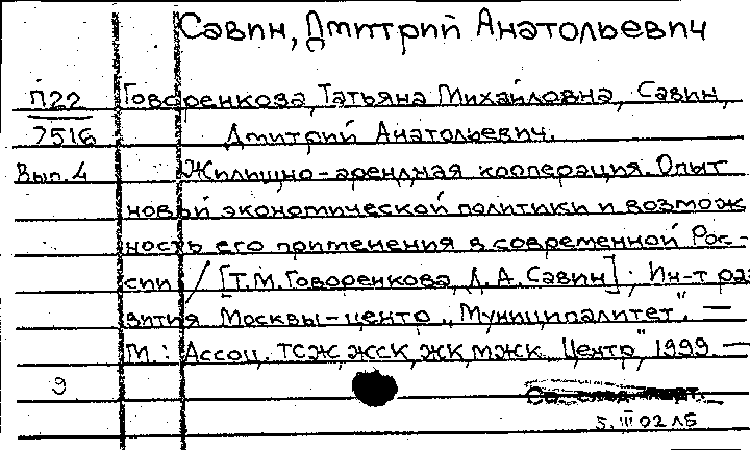 Савин, Дмитрий Анатольевич
П22 Говоренкова, Татьяна Михайловна, Савин,
7516 Дмитрий Анатольевич.
Вып. 4 Жилищно-арендная кооперация. Опыт
новой экономической политики и возмож
ность его применения в современной Рос-
сии / [Т.М. Говоренкова, Д.А. Савин]; Ин-т раз
вития Москвы-центр „Муниципалитет". —
М.: Ассоц. ТСЖ, ЖСК, ЖК, МЖК „Центр", 1999. —
9
5. III 02